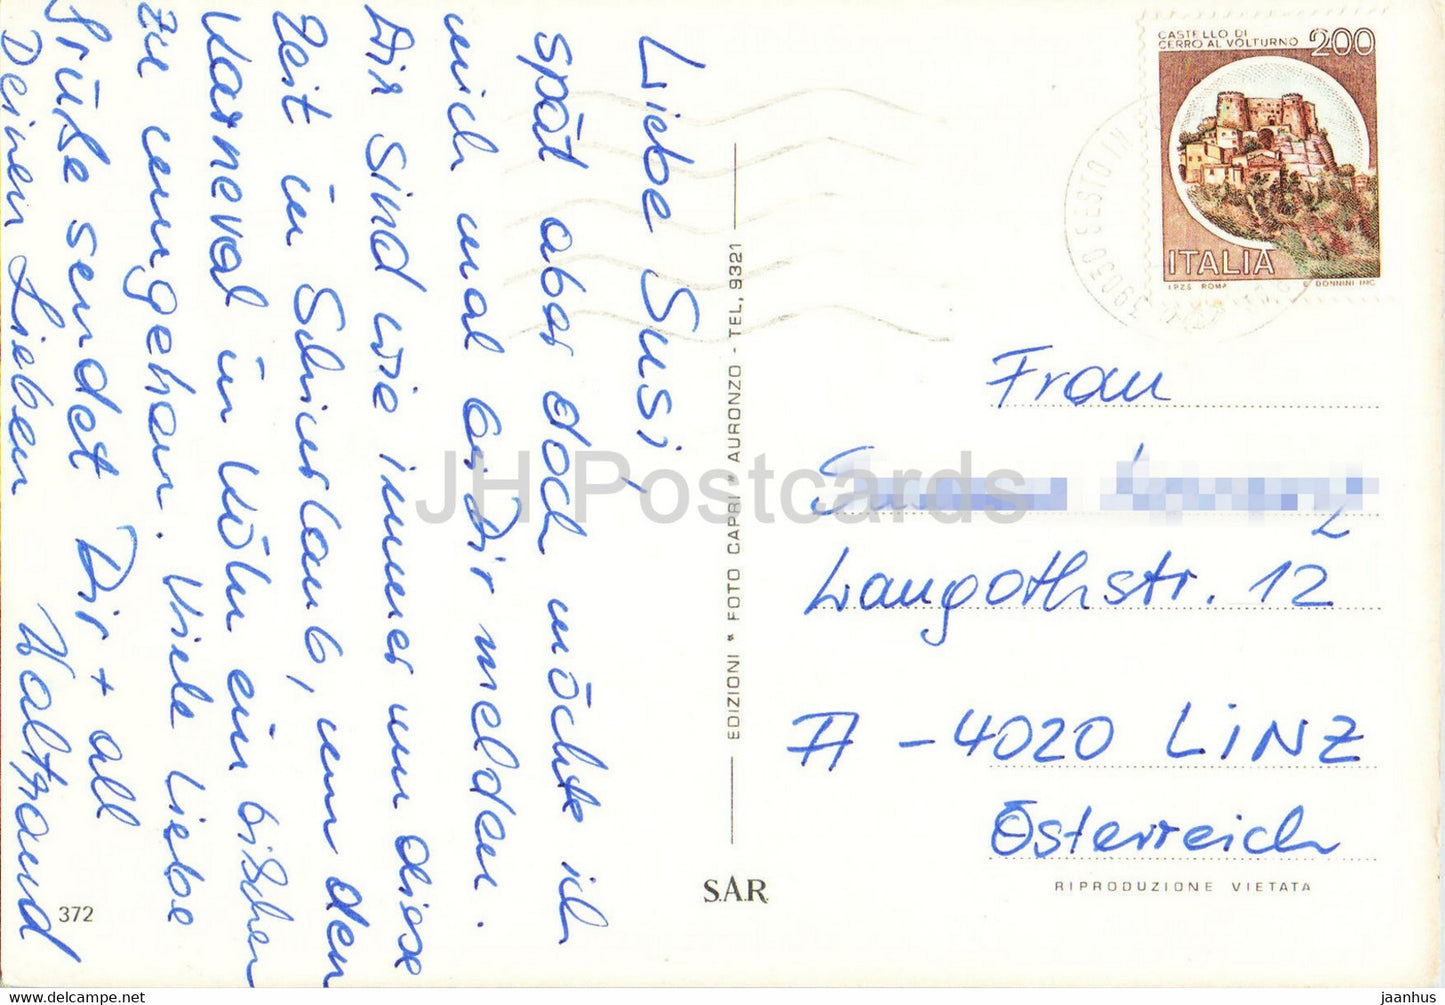 Liebe Susi,
spät aber doch möchte ich
mich mal bei Dir melden.
Wir sind wie immer um diese
Zeit in Schiurlaub, um den
Karneval in Köln ein bischen
zu umgehen. Viele liebe
Grüße sendet Dir + all
Deinen Lieben Waltraud
372
EDIZIONI * FOTO CAPRI * AURONZO - TEL. 9321
S.A.R.
CASTELLO DI
CERRO AL VOLTURNO 200
ITALIA
I.P.Z.S. ROMA E. DONNINI INC.
39030 SESTO IN
Frau
Langothstr. 12
A - 4020 LINZ
Österreich
RIPRODUZIONE VIETATA
JH Postcards
https://www.delcampe.net
jaanhus